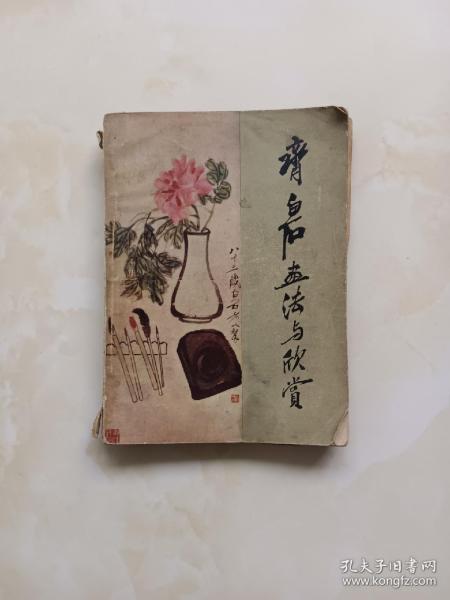 齐白石画法与欣赏
八十三岁白石老人
孔夫子旧书网
www.kongfz.com